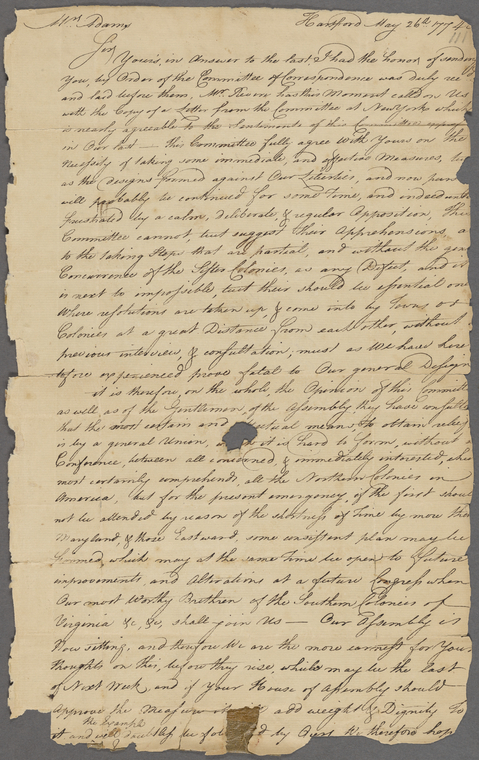 Mr. Adams Hartford May 26th 1774
Sir,
Yours, in Answer to the last, I had the honor of sending
You, by Order of the Committee of Correspondence was duly rec
and laid before them, Mr. Revere has this Moment called on Us
with the Copy of a Letter from the Committee at New York which
is nearly agreeable to the Sentiments of this Committee
in Our last — this Committee fully agree with Yours on the
Necessity of taking some immediate, and effectual Measures, but
as the Designs formed against Our Liberties, and now
will probably be continued for some Time, and indeed until
frustrated by a calm, deliberate, & regular Opposition, this
Committee cannot, but suggest their Apprehensions, a
to the taking Steps that are partial, and without the
Concurrence of the Sister Colonies, as any Defect, and it
is next to impossible, but their should be essential one
Where resolutions are taken up & come into by Towns or
Colonies at a great Distance from each other, without
previous interview, & consultation, must as We have here
tofore experienced prove fatal to Our general Design
it is therefore, on the whole, the Opinion of this Committee
as well, as of the Gentlemen, of the Assembly they have consulted
that the most certain and effectual means, to obtain relief
is by a general Union, it is hard to form, without a
Conference, between all concerned, & immediately interested, which
most certainly comprehends, all the Northern Colonies in
America, but for the present emergency, if the first should
not be attended by reason of the shortness of Time by more than
Maryland & those Eastward, some consistent plan may be
formed, which may at the same Time be open to future
improvements, and Alteration at a future Congress when
Our most Worthy Brethren of the Southern Colonies of
Virginia &c, &c, shall join Us — Our Assembly is
Now sitting, and therefore We are the more earnest for Your
thoughts on this, before they rise, which may be the last
of Next Week, and if your House of Assembly should
Approve the Measure add weight & Dignity to
the Example
it and will doubtless be followed by Ours We therefore hop